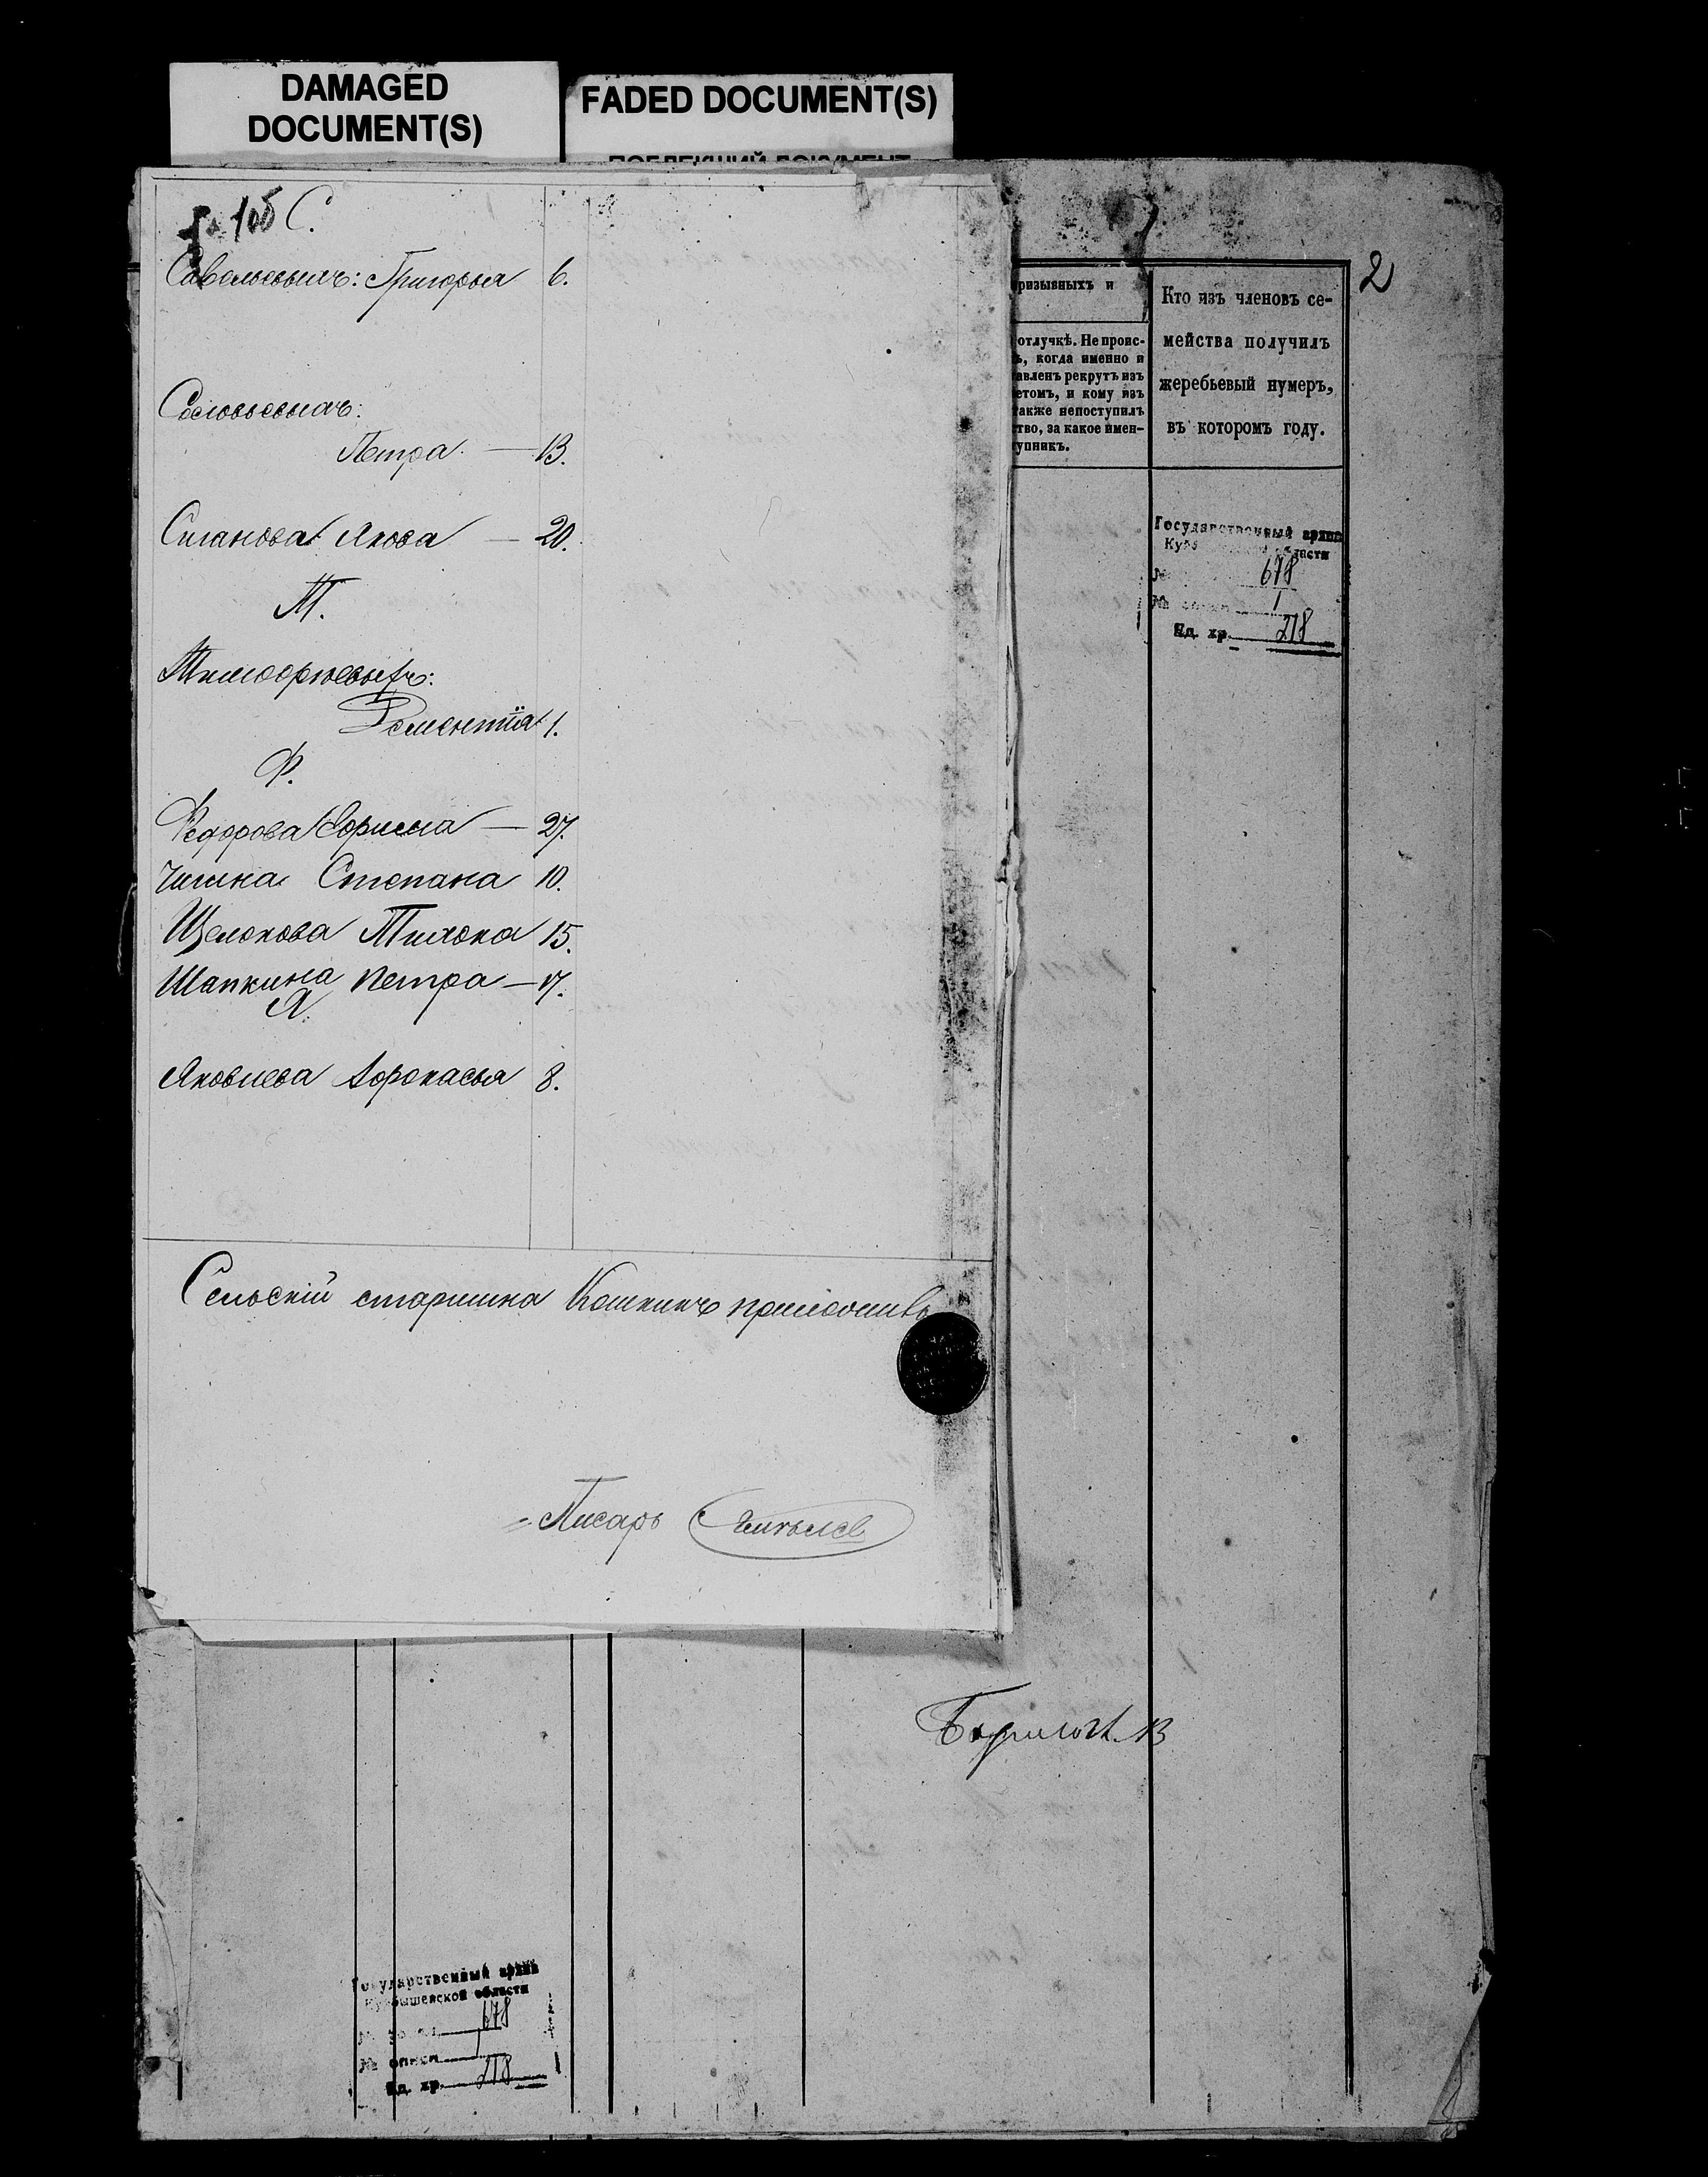 DAMAGED
DOCUMENT(S)
FADED DOCUMENT(S)
ПОБЛЕКШИЙ ДОКУМЕНТ
С.
Савельевыхъ: Григорья 6.
Соловьевыхъ:
Петра. — 13.
Сиганова Якова — 20.
Т.
Тимофѣевыхъ:
Дементія 1.
Ф.
Федорова Ефима — 27.
Чигина Степана 10.
Щелокова Тихона 15.
Шапкина Петра — 17.
Я.
Яковлева Афонасья 8.
Сельскій старшина Кошкинъ приложилъ
Писарь
2
ризывныхъ и
отлучкѣ. Не проис-
ь, когда именно и
авленъ рекрутъ изъ
етомъ, и кому изъ
также непоступилъ
тво, за какое имен-
упникъ.
Кто изъ членовъ се-
мейства получилъ
жеребьевый нумеръ,
въ которомъ году.
Государственный архив
области
№ 678
№ описи 1
Ед. хр. 218
Государственный архив
Куйбышевской области
№ фонда 678
№ описи 1
Ед. хр. 218